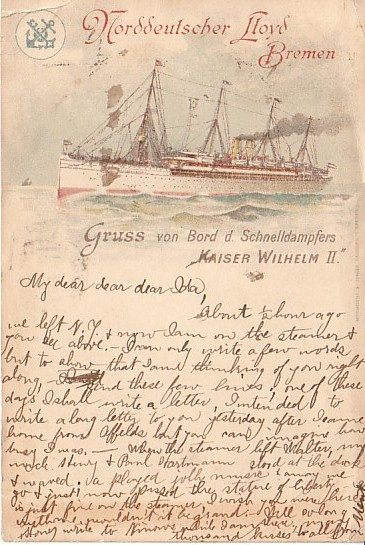 Norddeutscher Lloyd
Bremen
Gruss von Bord d. Schnelldampfers
"KAISER WILHELM II."
My dear dear dear Ida,
About ½ hour ago
we left N.Y & now I am on the steamer
you see above. — I can only write a few words
but to show that I am thinking of you right
along, I send these few lines; one of these
days I shall write a letter, I intended to
write a long letter to you yesterday after I came
home from but you can imagine how
busy I was. — When the steamer left Walter, my
uncle Henry & Paul Hartmann stood at the dock
& waved. played jolly music
go & just now passed the statue of liberty,
is just fine on the steamer, I wish you were here
wouldn't it be grand. — Tell
write to
thousand kisses to all from